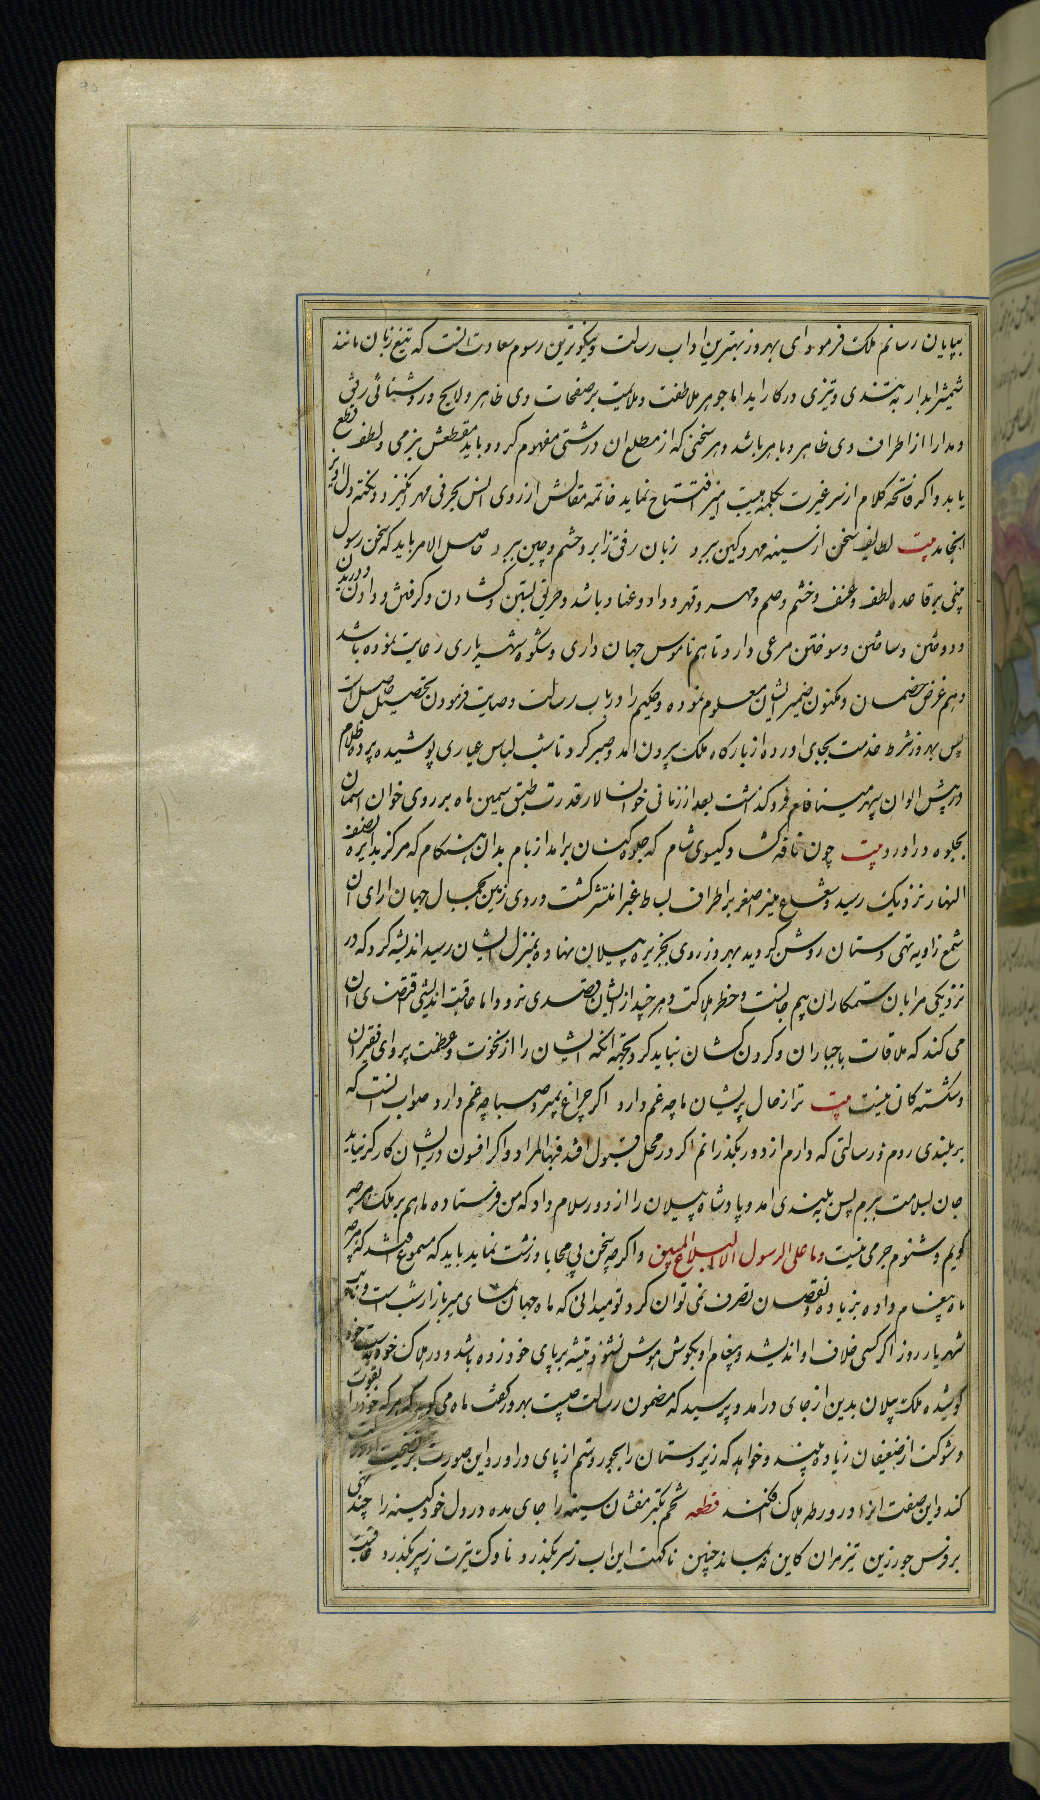 بپایان رسانم ملک فرمود ای بهروز بهترین اداب رسالت و نیکوترین رسوم سعادت انست که تیغ زبان مانند
شمشیر ابدار به تندی و تیزی در کار اید اما جوهر ملاطفت و ملایمت بر صفحات وی ظاهر و لایح و روشنائی رفق
و مدارا از اطراف وی ظاهر و باهر باشد و هر سخنی که از مطلع ان درشتی مفهوم کردد باید مقطعش بنرمی و لطف قطع
یابد و اکر فاتحه کلام از سر غیرت بکلمه هیبت امیز افتتاح نماید خاتمه مقالش از روی انس بحرفی مهر انکیز و نکته دل اویز
انجامد بیت لطایف سخن از سینه مهر و کین ببرد زبان رفق ز ابرو خشم و چین ببرد حاصل الامر باید که سخن رسول
مبنی بر قاعده لطف و عنف و خشم و حلم و مهر و قهر و داد و عناد باشد و طریق بستن و کشادن و کرفتن و دادن و دریدن
و دوختن و ساختن و سوختن مرعی دارد تا هم ناموس جهان داری و شکوه شهریاری رعایت نموده باشد
و هم غرض خصمان و مکنون ضمیر ایشان معلوم نموده و حکیم را در باب رسالت وصایت فرمودن تحصیل حاصل است
پس بهروز شرط خدمت بجای اورده از بارکاه ملک بیرون امد و صبر کرد تا شب لباس عیاری پوشیده پرده ظلام
در پیش الوان سپهر مینافام فرو کذاشت بعد از زمانی خوانسالار قدرت طبق سیمین ماه بر روی خوان اسمان
بجلوه در اورد بیت چون نافه کشاد کیسوی شام که جلوه کنان برامد از بام بدان هنکام که مرکز بدایره نصف
النهار نزدیک رسید و شعاع نیر اصغر بر اطراف بساط غبرا منتشر کشت و روی زمین بجمال جهان ارای ان
شمع زاویه تهی دستان روشن کردید بهروز روی بجزیره پیلان نهاده بمنزل ایشان رسید اندیشه کرد که در
نزدیکی مرا بان ستمکاران بیم جانست و خطر هلاکت و هر چند از ایشان قصدی نرود اما عاقبت اندیشی اقتضای ان
می کند که ملاقات با جباران و کردن کشان نباید کرد بجهة انکه ایشان را از نخوت و عظمت پروای فقیران
و شکسته کان نیست بیت ترا ز حال پریشان ما چه غم دارد اکر چراغ بمیرد صبا چه غم دارد صواب انست که
بر بلندی روم و رسالتی که دارم از دور بکذرانم اکر در محل قبول افتد فهو المراد و اکر افسون در ایشان کارکر نیاید
جان بسلامت ببرم پس ببلندی امد و پادشاه پیلان را از دور سلام داد که من فرستاده ماهم بر ملک هر چه
کویم و شنوم جرمی نیست و ما علی الرسول الا البلاغ المبین و اکر چه سخن بی محابا و زشت نماید باید که مسموع افتد که هر چه
ماه پیغام داده بزیاده و نقصان تصرف نمی توان کرد تو میدانی که ماه جهان نمای میر بازار شبست و نایب
شهریار روز اکر کسی خلاف او اندیشد و پیغام او بکوش هوش نشنود تیشه بر پای خود زده باشد و در هلاک خود بدست خود
کوشیده ملک پیلان بدین از جای در امد و پرسید که مضمون رسالت چیست بهروز کفت ماه می کوید که هر که خود را بقوت
و شوکت از ضعیفان زیاده بیند و خواهد که زیردستان را بجور و ستم از پای در اورد این صورت بر فضیحت
کند و این صفت او را در ورطه هلاک افکند قطعه تخم تکبر منشان سینه را جای مده در دل خود کینه را چندی
بر فرس جور زین تیز مران کاین نماند چنین ناکهت این اب ز سر بکذرد ناوک تیرت ز سپر بکذرد عاقبت